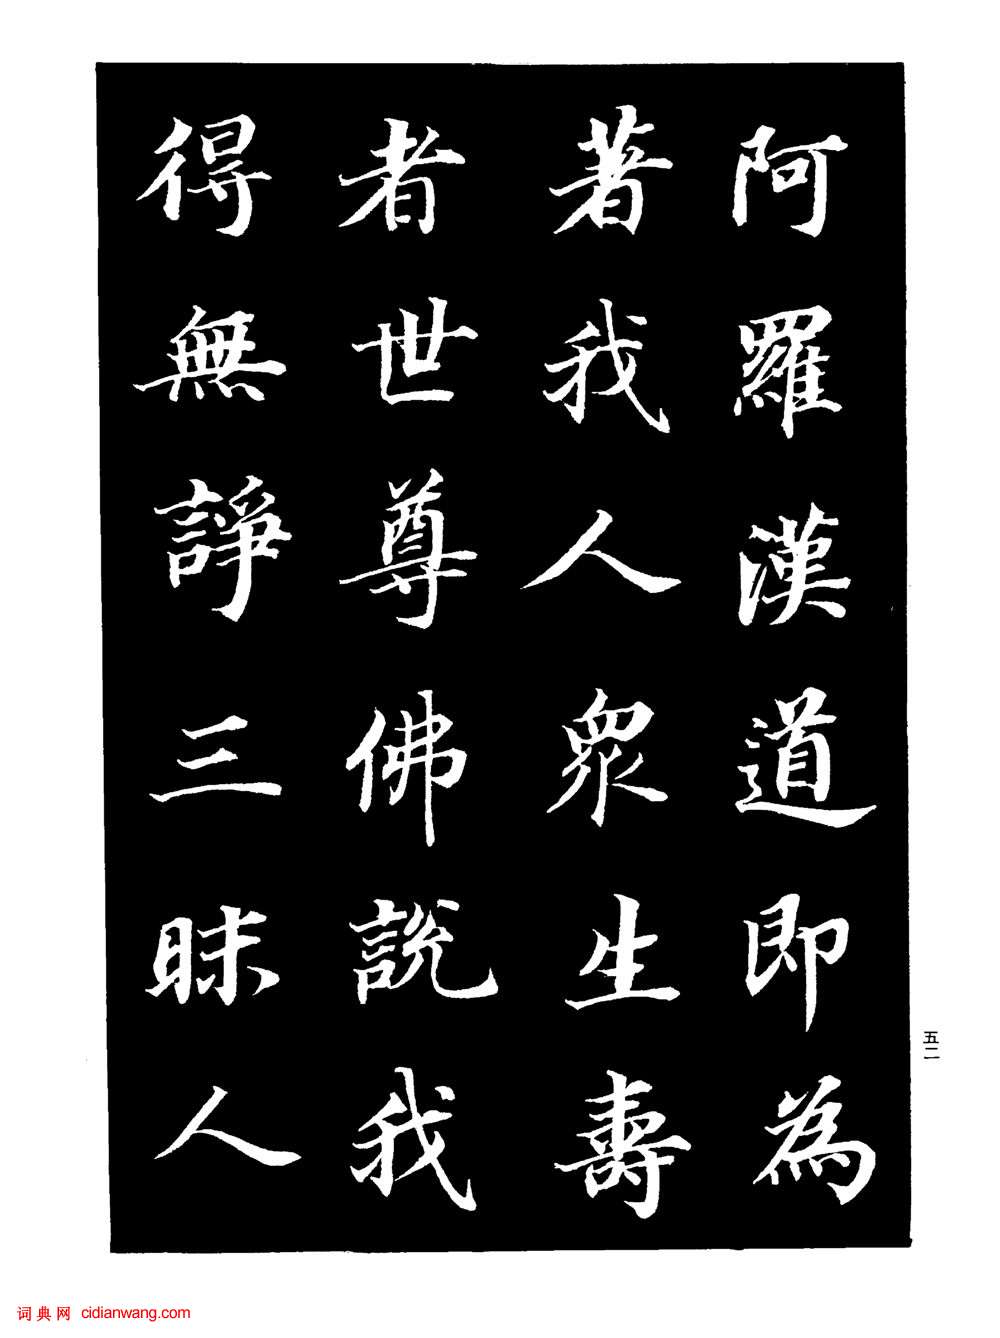 阿羅漢道即為
著我人眾生壽
者世尊佛說我
得無諍三昧人
五二
词典网 cidianwang.com